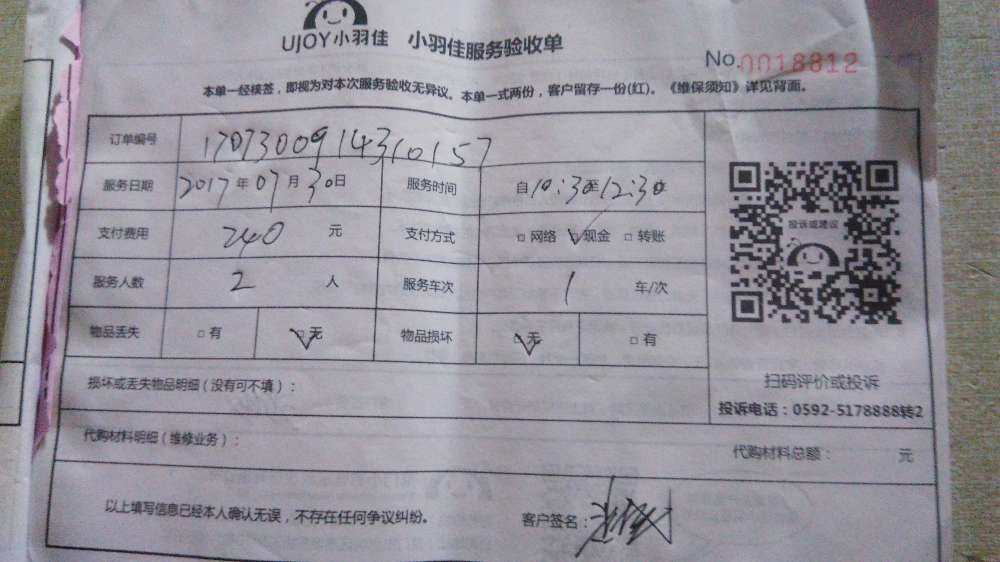 UJOY小羽佳 小羽佳服务验收单
No.0018812
本单一经核签，即视为对本次服务验收无异议。本单一式两份，客户留存一份(红)。《维保须知》详见背面。
订单编号 1707300914310157
服务日期 2017年07月30日 服务时间 自10:30至12:30
支付费用 240 元 支付方式 □网络 ☑现金 □转账
服务人数 2 人 服务车次 1 车/次
物品丢失 □有 ☑无 物品损坏 ☑无 □有
投诉或建议
扫码评价或投诉
投诉电话：0592-5178888转2
损坏或丢失物品明细（没有可不填）：
代购材料明细（维修业务）： 代购材料总额： 元
以上填写信息已经本人确认无误，不存在任何争议纠纷。 客户签名：